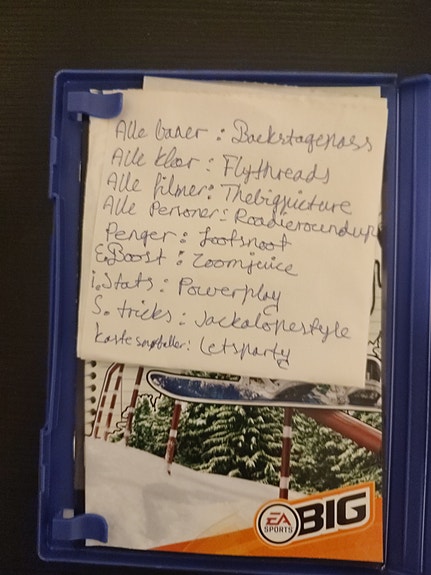 Alle baner : Backstagepass
Alle klær : Flythreads
Alle filmer : Thebigpicture
Alle Personer : Roadieroundup
Penger : Lootsnoot
E. Boost : Zoomjuice
i. Stats : Powerplay
S. tricks : Jackalopestyle
kaste snøballer : Letsparty
EA
SPORTS
BIG